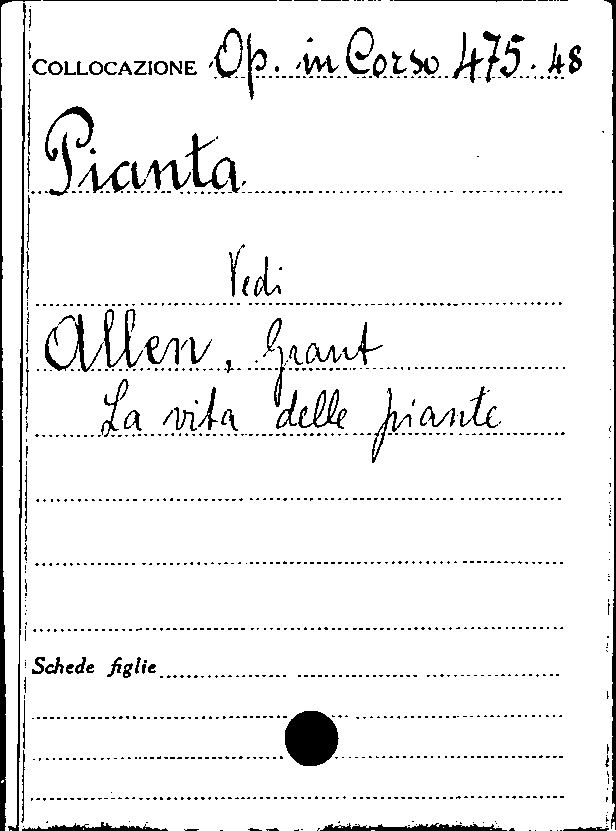 COLLOCAZIONE Op. in Corso 475. 48
Pianta
Vedi
Allen, Grant
La vita delle piante
Schede figlie